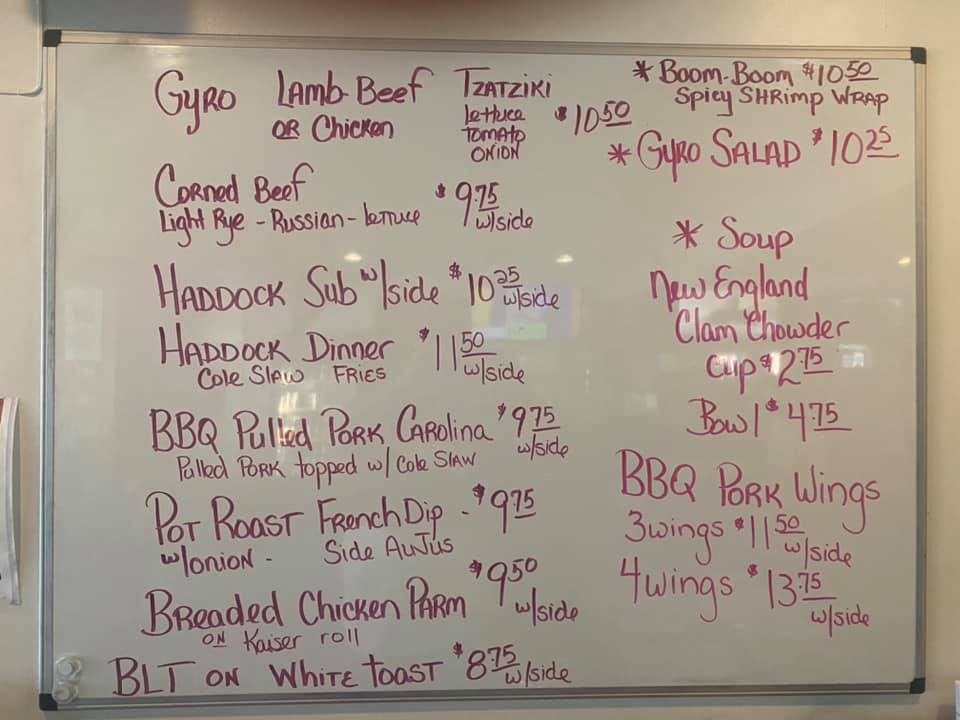 Gyro Lamb-Beef Tzatziki
or Chicken lettuce $10.50
tomato
onion
Corned Beef $9.75
Light Rye - Russian - lettuce w/side
Haddock Sub w/side $10.25 w/side
Haddock Dinner $11.50
Cole Slaw Fries w/side
BBQ Pulled Pork Carolina $9.75
Pulled Pork topped w/ Cole Slaw w/side
Pot Roast French Dip - $9.75
w/onion - Side AuJus
Breaded Chicken Parm $9.50
on Kaiser roll w/side
BLT on White toast $8.75 w/side
* Boom-Boom $10.50
Spicy Shrimp Wrap
* Gyro Salad $10.25
* Soup
New England
Clam Chowder
cup $2.75
Bowl $4.75
BBQ Pork Wings
3 wings $11.50
w/side
4 wings $13.75
w/side